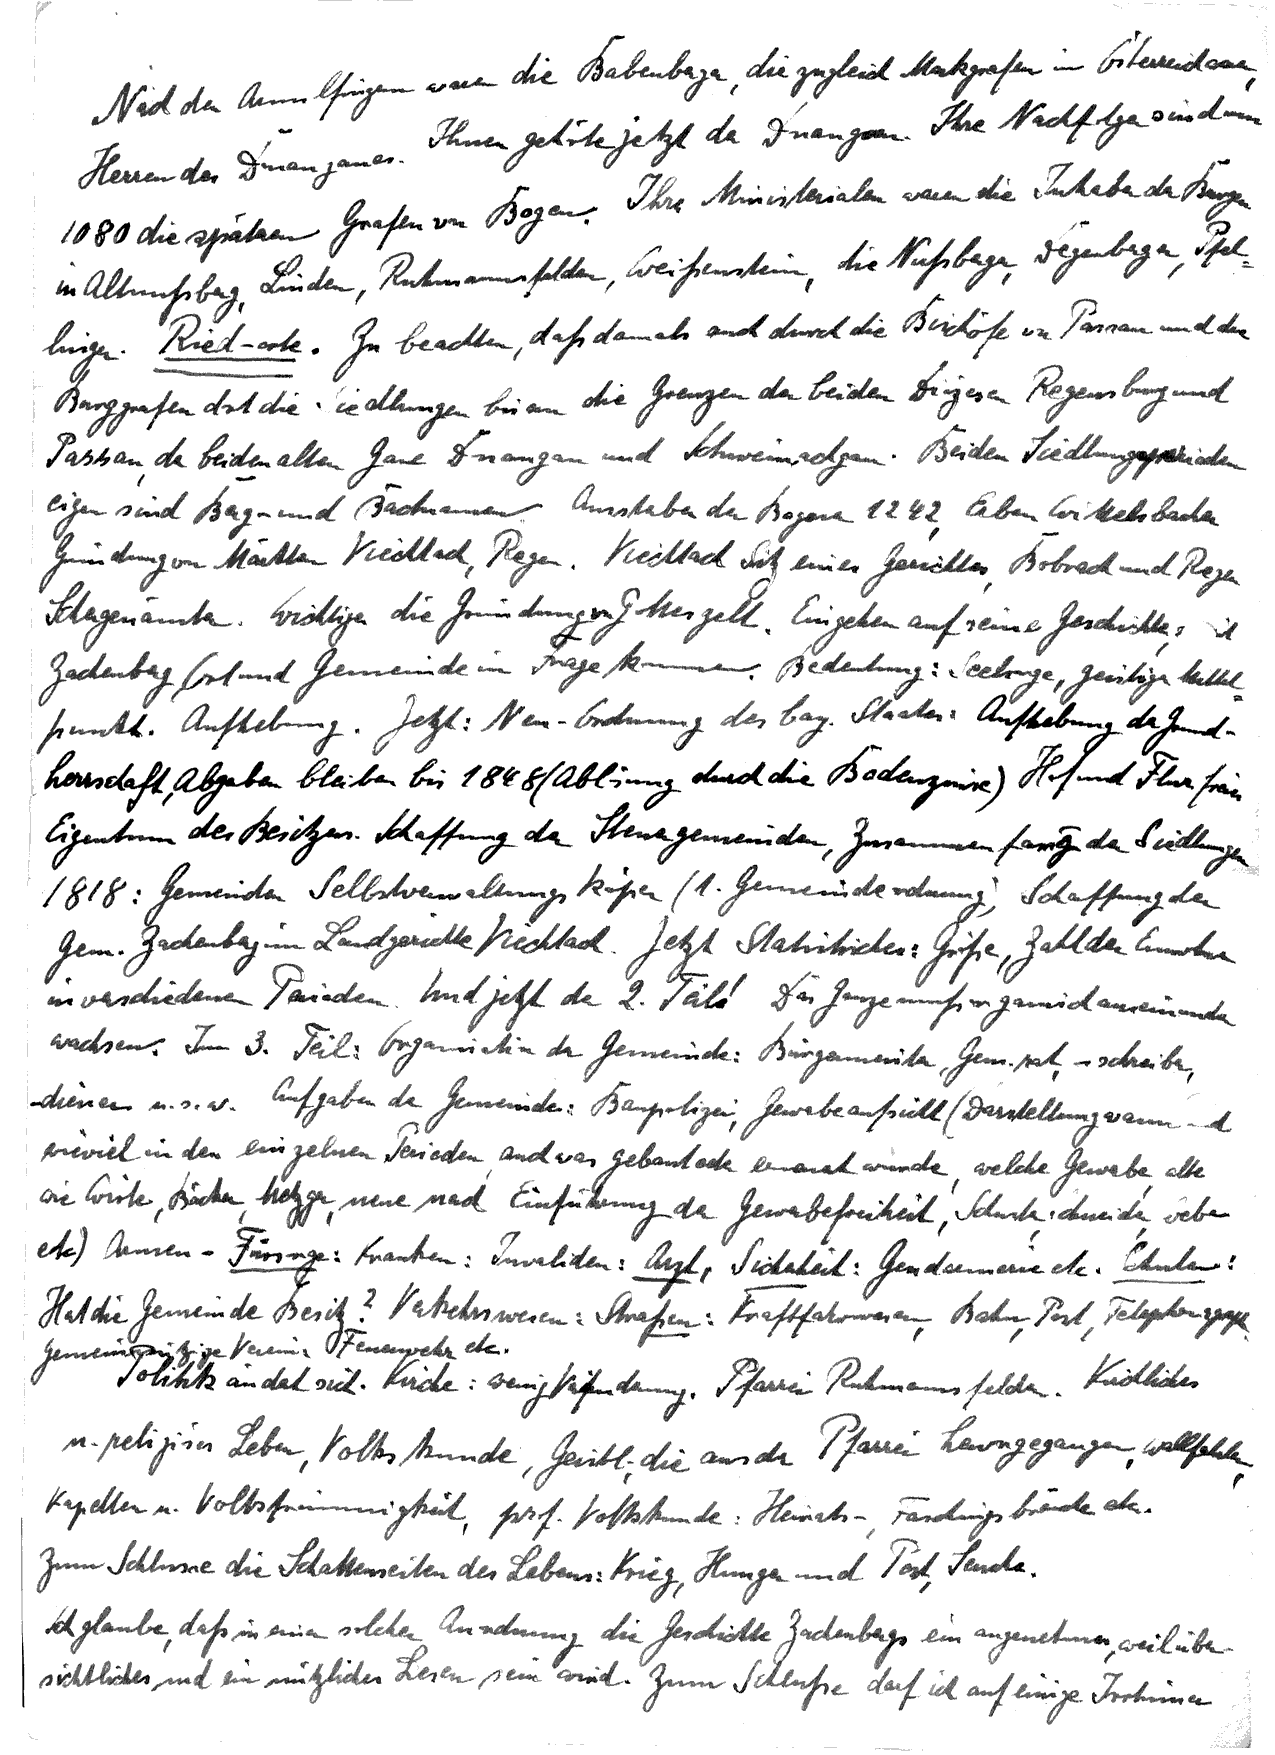 Nach den Arnulfingern waren die Babenberger, die zugleich Markgrafen in Österreich waren,
Herren des Donaugaues. Ihnen gehörte jetzt der Donaugau. Ihre Nachfolger sind um
1080 die späteren Grafen von Bogen. Ihre Ministerialen waren die Inhaber der Burgen
in Altnußberg, Linden, Ruhmannsfelden, Weißenstein, die Nußberger, Degenberger, Pfel-
linger. Ried-orte. Zu beachten, daß damals auch durch die Bischöfe von Passau und den
Burggrafen dort die Siedlungen bis an die Grenzen der beiden Diözesen Regensburg und
Passau, der beiden alten Gaue Donaugau und Schweinachgau. Beiden Siedlungsperioden
eigen sind Berg- und Bachnamen. Aussterben der Bogener 1242, Erben Wittelsbacher
Gründung von Märkten Viechtach, Regen. Viechtach Sitz eines Gerichtes, Bobrach und Regen
Schergenämter. Wichtiger die Gründung von Gotteszell. Eingehen auf seine Geschichte,
Zachenberg Ort und Gemeinde in Frage kommen. Bedeutung: Seelsorge, geistiger Mittel-
punkt. Aufhebung. Jetzt: Neu-Ordnung des bay. Staates: Aufhebung der Grund-
herrschaft, Abgaben bleiben bis 1848 (Ablösung durch die Bodenzinse) Hof und Flur freies
Eigentum des Besitzers. Schaffung der Steuergemeinden, Zusammenfassg der Siedlungen
1818: Gemeinden Selbstverwaltungskörper (1. Gemeindeordnung), Schaffung der
Gem. Zachenberg im Landgerichte Viechtach. Jetzt Statistisches: Größe, Zahl der Einwohner
in verschiedenen Perioden. Und jetzt der 2. Teil! Das Ganze muß organisch auseinander
wachsen. Im 3. Teil: Organisation der Gemeinde: Bürgermeister, Gem.rat, -schreiber,
-diener u.s.w. Aufgaben der Gemeinde: Baupolizei, Gewerbeaufsicht (Darstellung wann und
wieviel in den einzelnen Perioden, auch was gebaut oder erneuert wurde, welche Gewerbe, alte
wie Wirte, Bäcker, Metzger, neue nach Einführung der Gewerbefreiheit, Schuster, Schneider, Weber
etc) Armen-Fürsorge: Kranken: Invaliden: Arzt, Sicherheit: Gendarmerie etc. Schulen:
Hat die Gemeinde Besitz? Verkehrswesen: Straßen: Kraftfahrwesen, Bahn, Post,
Gemeinnützige Vereine: Feuerwehr etc.
Politik ändert sich. Kirche: wenig Veränderung. Pfarrei Ruhmannsfelden. Kirchliches
u. religiöses Leben, Volkskunde, Geistl., die aus der Pfarrei hervorgegangen, Wallfahrten,
Kapellen u. Volksfrömmigkeit, prof. Volkskunde: Heirats-, Faschingsbräuche etc.
Zum Schlusse die Schattenseiten des Lebens: Krieg, Hunger und Pest, Seuche.
Ich glaube, daß in einer solchen Anordnung die Geschichte Zachenbergs ein angenehmes, weil über-
sichtliches und ein nützliches Lesen sein wird. Zum Schluße darf ich auf einige Irrtümer